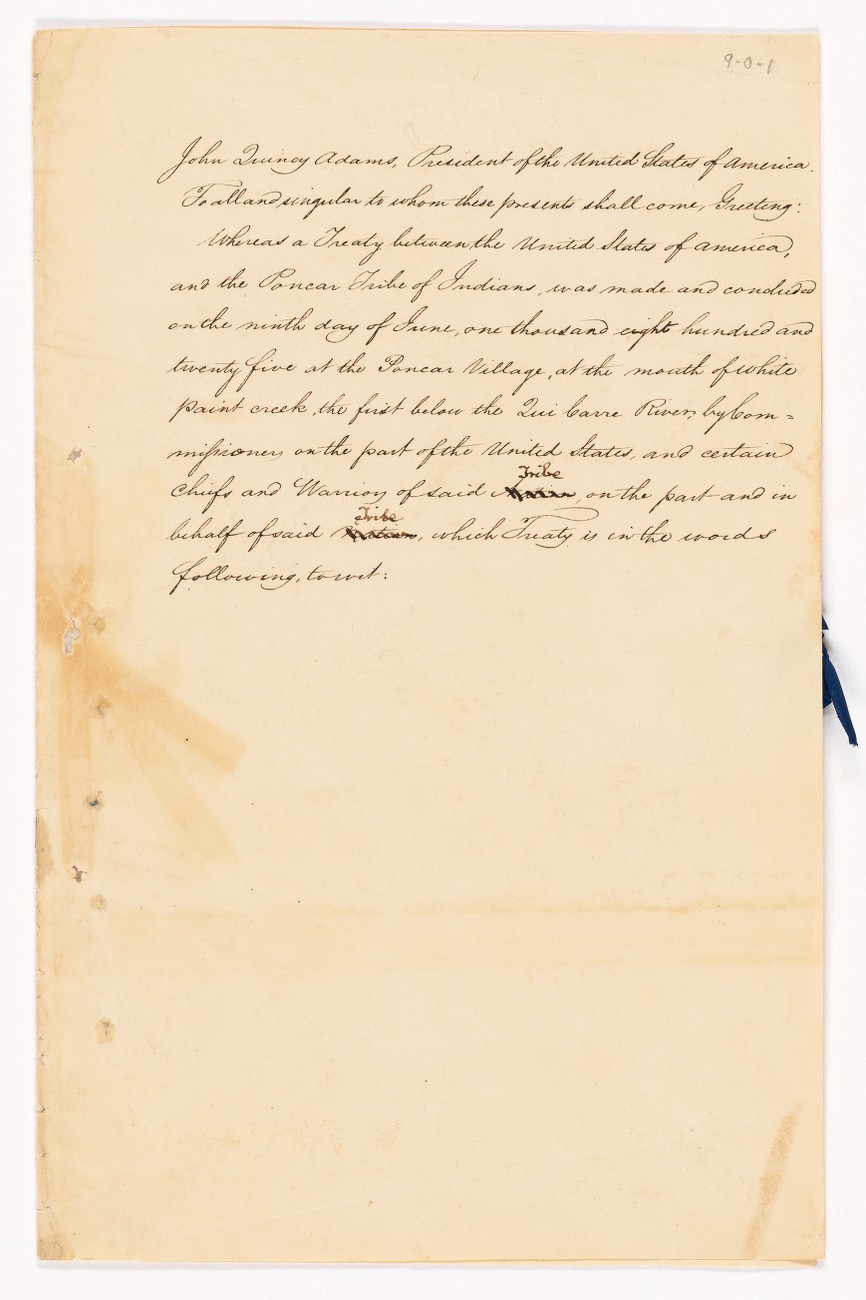 9-0-1
John Quincy Adams, President of the United States of America.
To all and singular to whom these presents shall come, Greeting:
Whereas a Treaty between the United States of America,
and the Poncar Tribe of Indians, was made and concluded
on the ninth day of June, one thousand eight hundred and
twenty five at the Poncar Village, at the mouth of White
paint creek, the first below the Qui Carre River, by Com=
missioners on the part of the United States, and certain
Tribe
Chiefs and Warriors of said Nation, on the part and in
Tribe
behalf of said Nation, which Treaty is in the words
following, to wit: